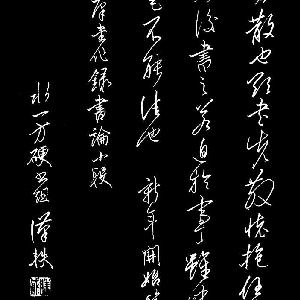 散也欲書先散懷抱任
後書之若迫於事雖
毫不能佳也 新年開始
書作錄書論小段
水一方硬書組 漢軼